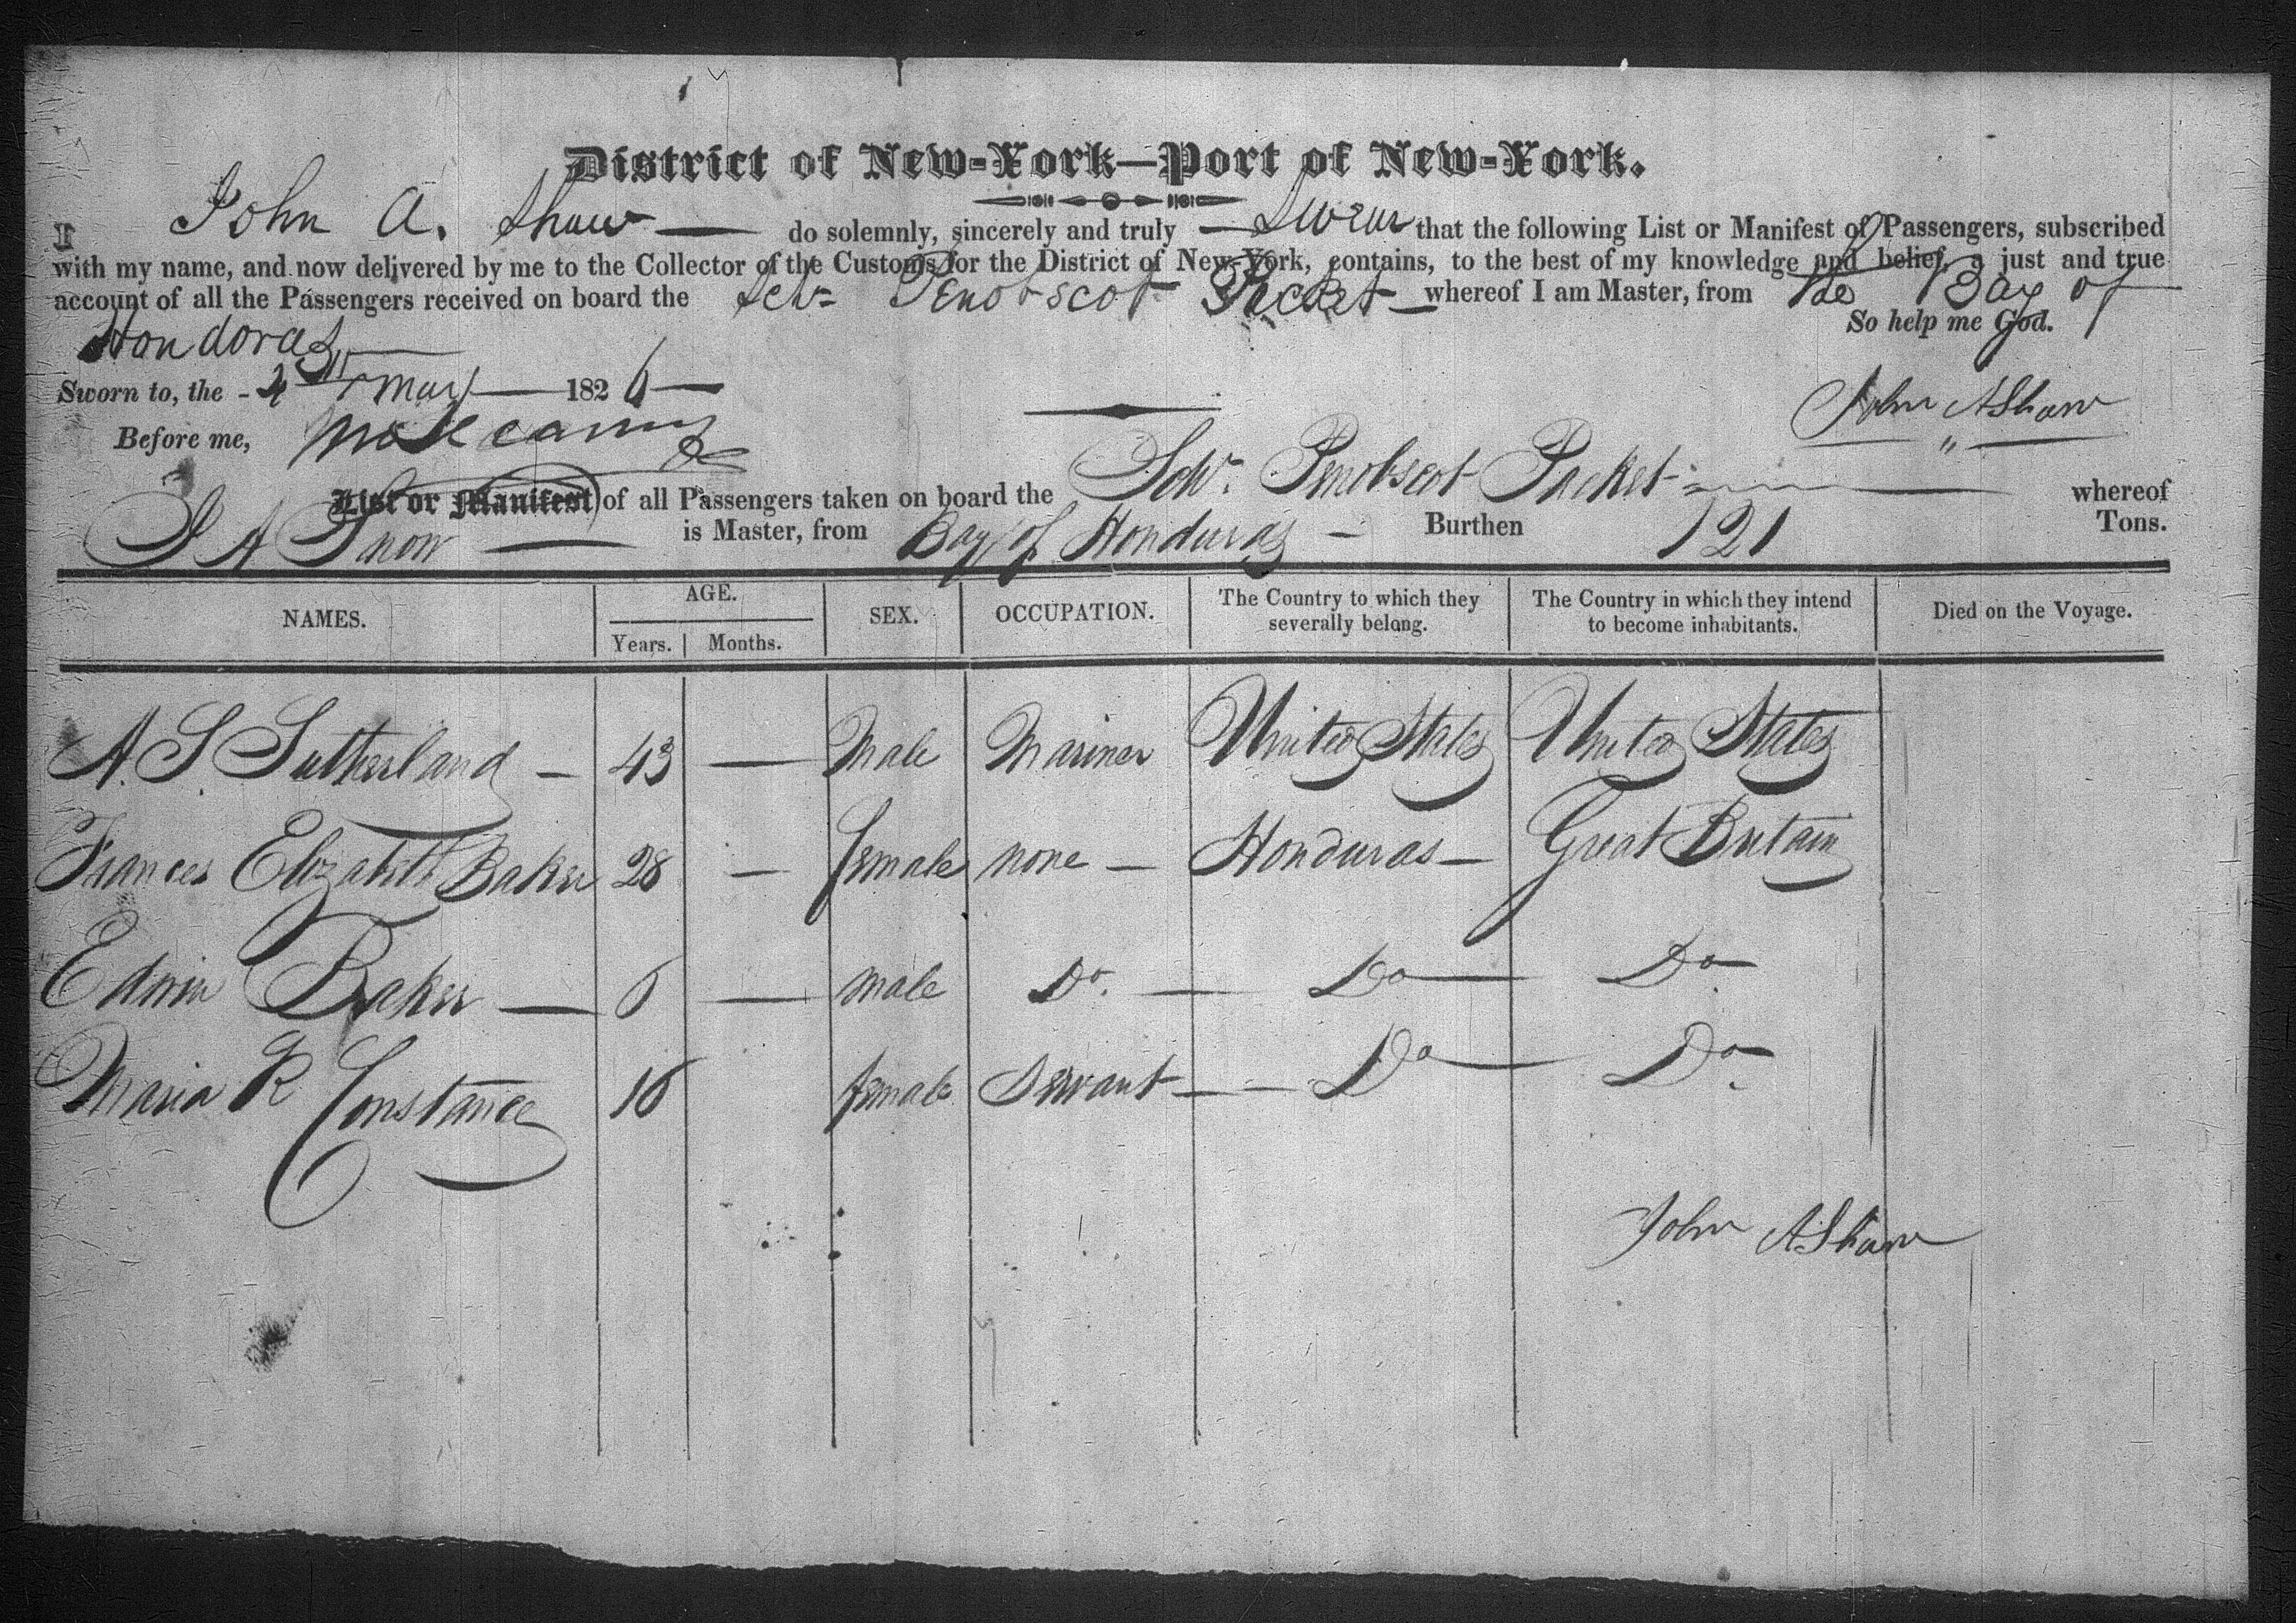 District of New-York—Port of New-York.
I John A. Shaw — do solemnly, sincerely and truly — Swear that the following List or Manifest of Passengers, subscribed
with my name, and now delivered by me to the Collector of the Customs for the District of New-York, contains, to the best of my knowledge and belief, a just and true
account of all the Passengers received on board the Schr Penobscot Packet — whereof I am Master, from the Bay of
Hondoras — So help me God.
Sworn to, the - May — 1826 —
John A Shaw
Before me,
List or Manifest of all Passengers taken on board the Schr. Penobscot Packet — whereof
J A Snow — is Master, from Bay of Honduras — Burthen 121 Tons.
NAMES. AGE. SEX. OCCUPATION. The Country to which they severally belong. The Country in which they intend to become inhabitants. Died on the Voyage.
Years. Months.
A. S Sutherland — 43 — Male Mariner United States United States
Frances Elizabeth Baker 28 — female none — Honduras — Great Britain
Edwin Baker — 6 — male Do. — Do — Do.
Maria R Constance 16 female Servant — — Do — Do.
John A Shaw